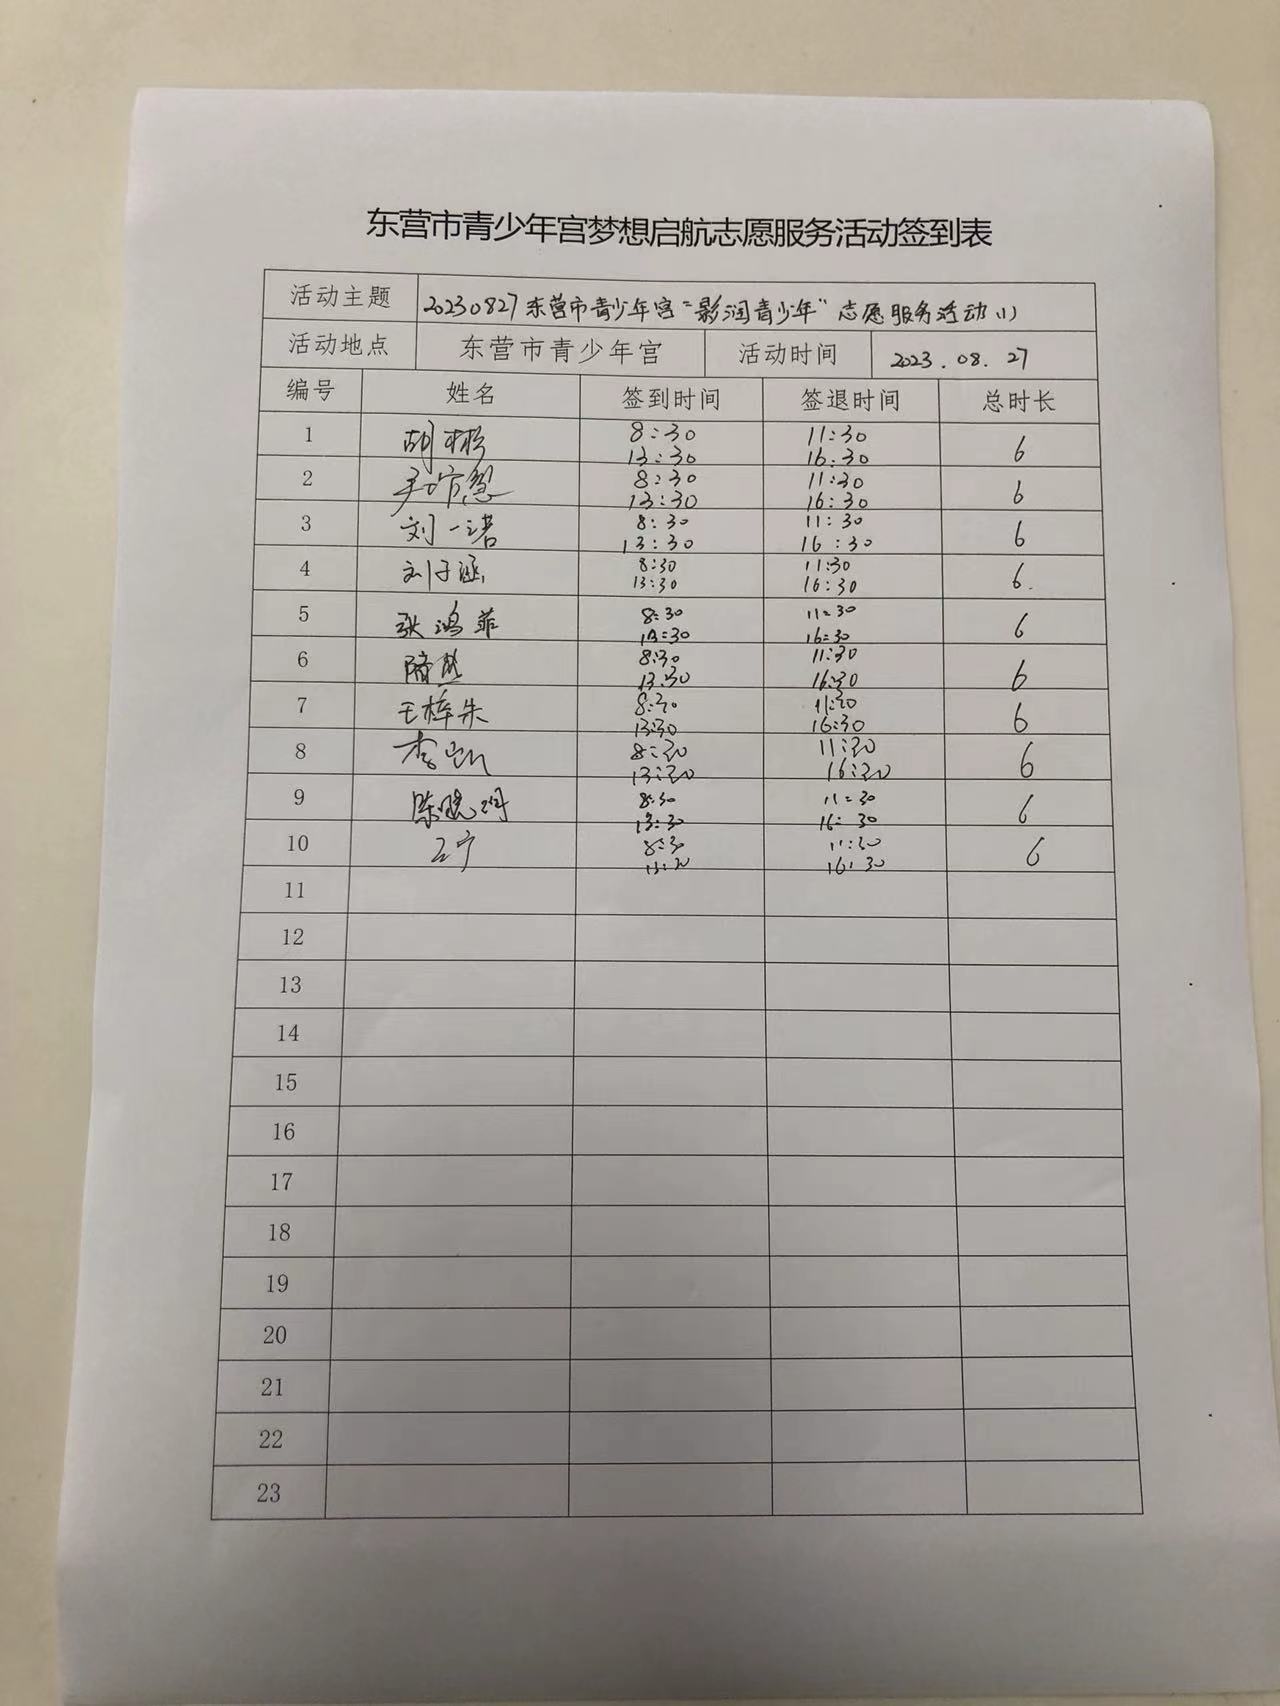 东营市青少年宫梦想启航志愿服务活动签到表
活动主题 20230827东营市青少年宫“影润青少年”志愿服务活动(1)
活动地点 东营市青少年宫 活动时间 2023.08.27
编号 姓名 签到时间 签退时间 总时长
1 胡彬 8:30 11:30 6
13:30 16:30
2 8:30 11:30 6
13:30 16:30
3 刘一诺 8:30 11:30 6
13:30 16:30
4 刘子涵 8:30 11:30 6.
13:30 16:30
5 张鸿菲 8:30 11:30 6
13:30 16:30
6 8:30 11:30 6
13:30 16:30
7 王梓朱 8:30 11:30 6
13:30 16:30
8 李凯 8:30 11:30 6
13:30 16:30
9 陈晓润 8:30 11:30 6
13:30 16:30
10 王宁 8:30 11:30 6
13:30 16:30
11
12
13
14
15
16
17
18
19
20
21
22
23